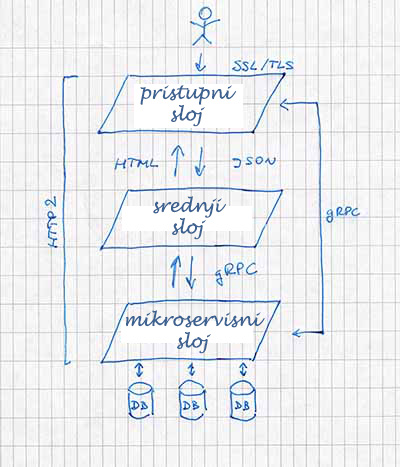 SSL/TLS
pristupni
sloj
HTML
JSON
HTTP2
srednji
sloj
gRPC
gRPC
mikroservisni
sloj
DB
DB
DB